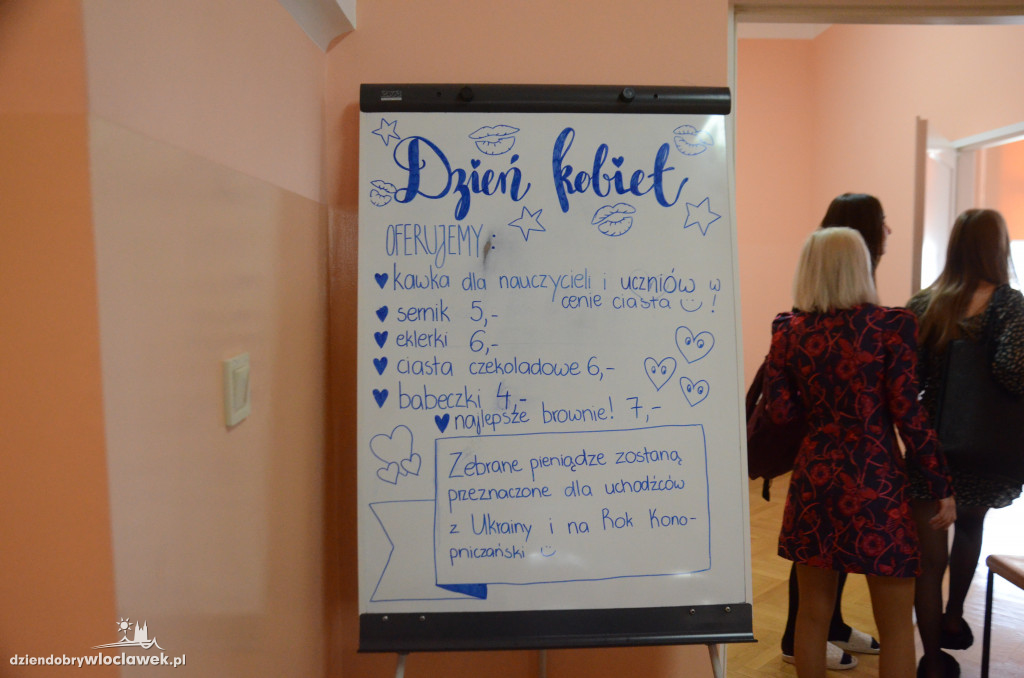 Dzień kobiet
OFERUJEMY:
kawka dla nauczycieli i uczniów w
cenie ciasta !
sernik 5,-
eklerki 6,-
ciasta czekoladowe 6,-
babeczki 4,-
najlepsze brownie! 7,-
Zebrane pieniądze zostaną
przeznaczone dla uchodźców
z Ukrainy i na Rok Kono-
pniczański
dziendobrywloclawek.pl